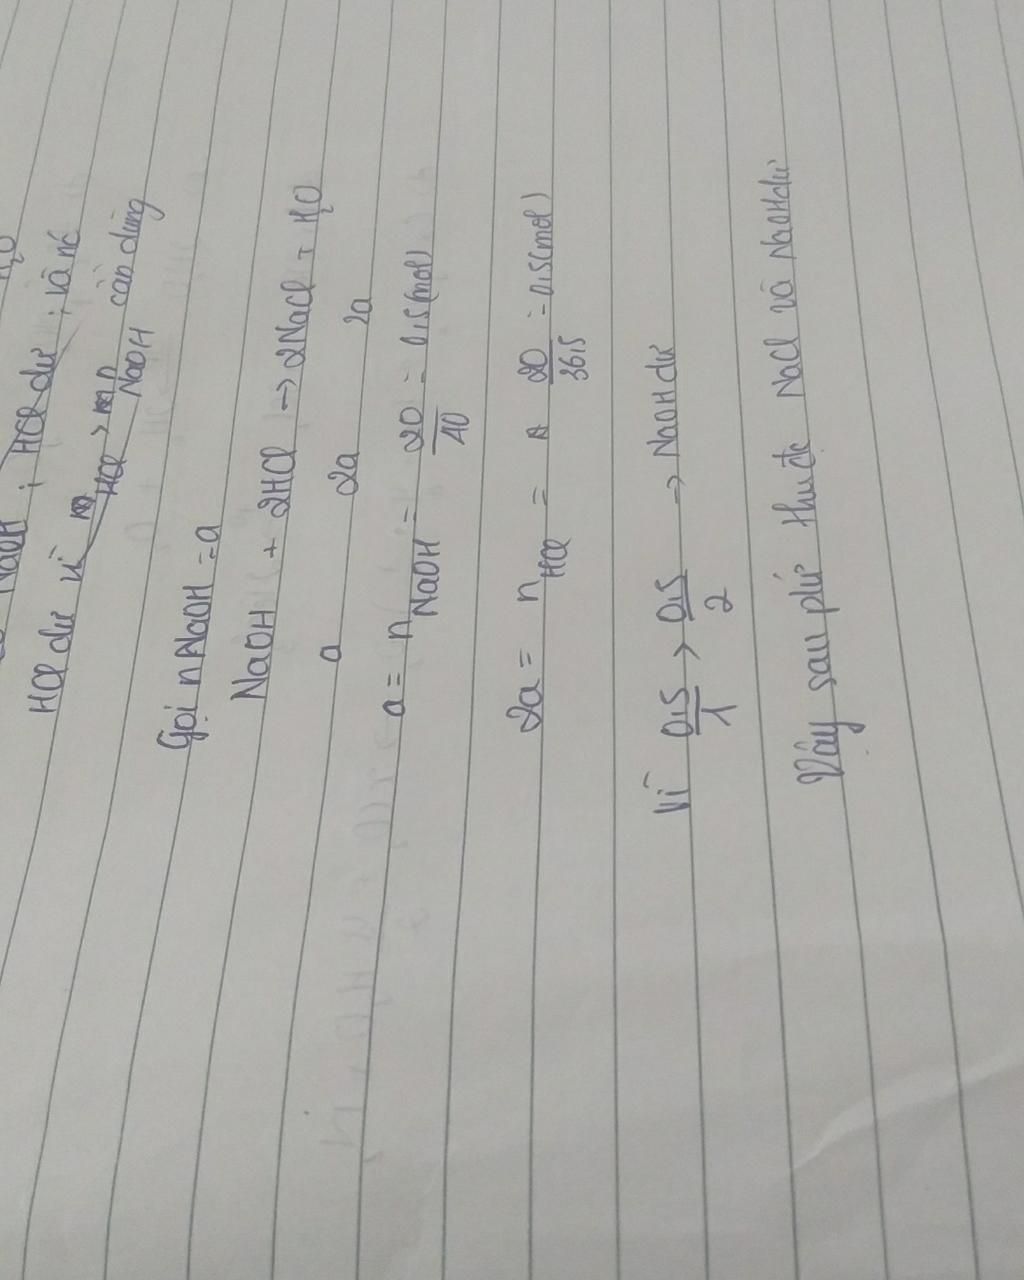 H₂O
NaOH ; HCl dư ; và nó
HCl dư vì HCl > n NaOH cần dùng
Gọi nNaOH = a
NaOH + 2HCl → 2NaCl + H₂O
a 2a 2a
a = n NaOH = 20/40 = 0,5(mol)
2a = n HCl = 20/36,5 = 0,5(mol)
Vì 0,5/1 > 0,5/2 → NaOH dư
Vậy sau phứ thu đc NaCl và NaOH dư